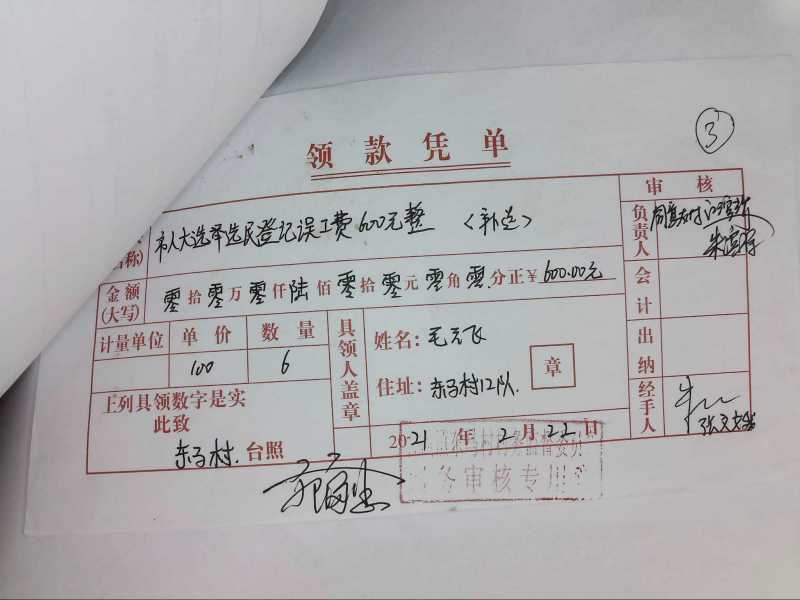 ③
领款凭单
审核
名称)
市人大选举选民登记误工费600元整
负责人
同意支付
金额(大写)
零拾零万零仟陆佰零拾零元零角零分正¥600.00元
会计
计量单位 单价 数量
100 6
具领人盖章
姓名:毛云飞
住址:东马村12队.
章
出纳
上列具领数字是实
此致
东马村.台照
2021年2月22日
经手人
村务监督委员
务审核专用章